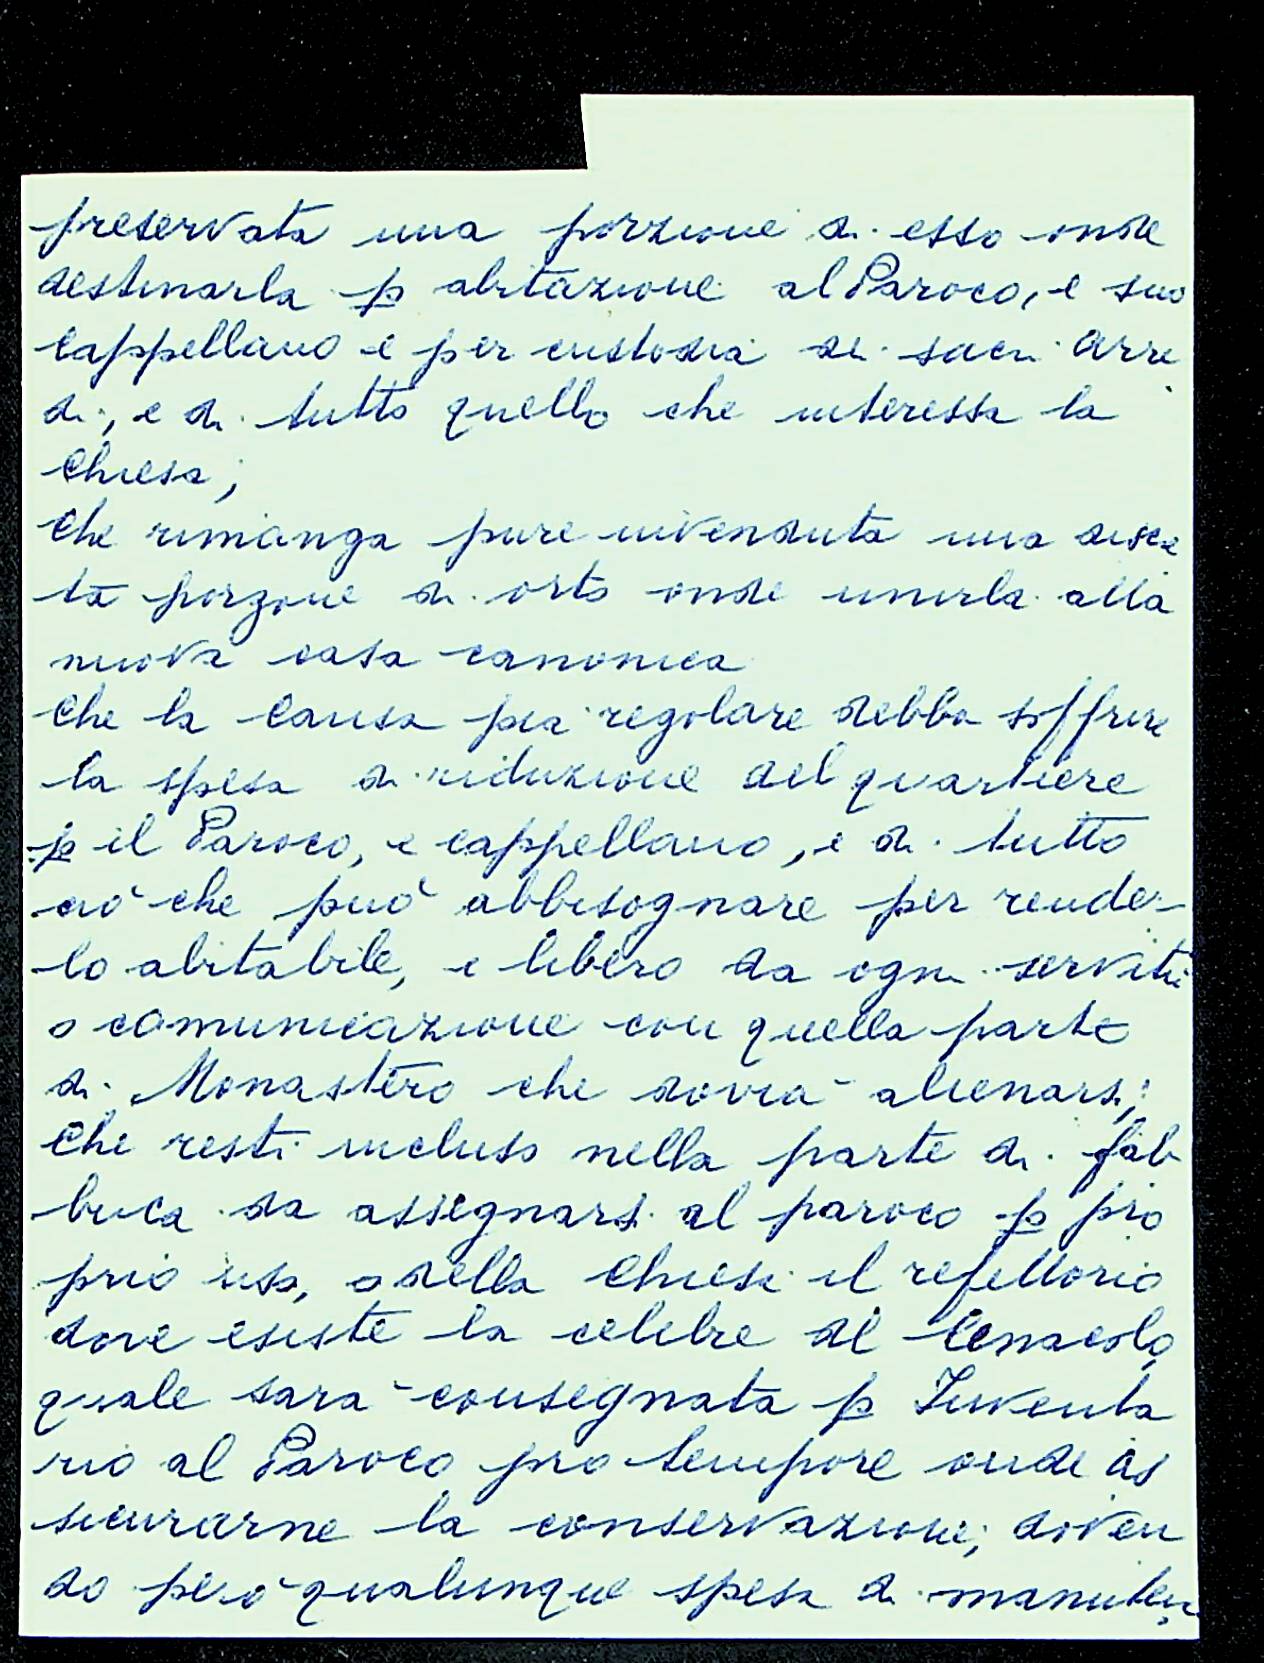 preservata una porzione di esso onde
destinarla p abitazione al Paroco, e suo
cappellano e per custodia di sacri arre
di, e di tutto quello che interessa la
Chiesa;
Che rimanga pure invenduta una discre
ta porzone di orto onde unirla alla
nuova casa canonica
Che la Causa pia regolare debba soffrire
la spesa di riduzione del quartiere
p il Paroco, e cappellano, e di tutto
ciò che può abbisognare per render
lo abitabile, e libero da ogni servitù
o comunicazione con quella parte
di Monastero che dovrà alienarsi;
Che resti incluso nella parte di fab
brica da assegnarsi al paroco p pro
prio uso, o della Chiesa il refettorio
dove esiste la celebre del Cenacolo,
quale sarà consegnata p Inventa
rio al Paroco pro tempore onde as
sicurarne la conservazione; doven
do però qualunque spesa di manuten